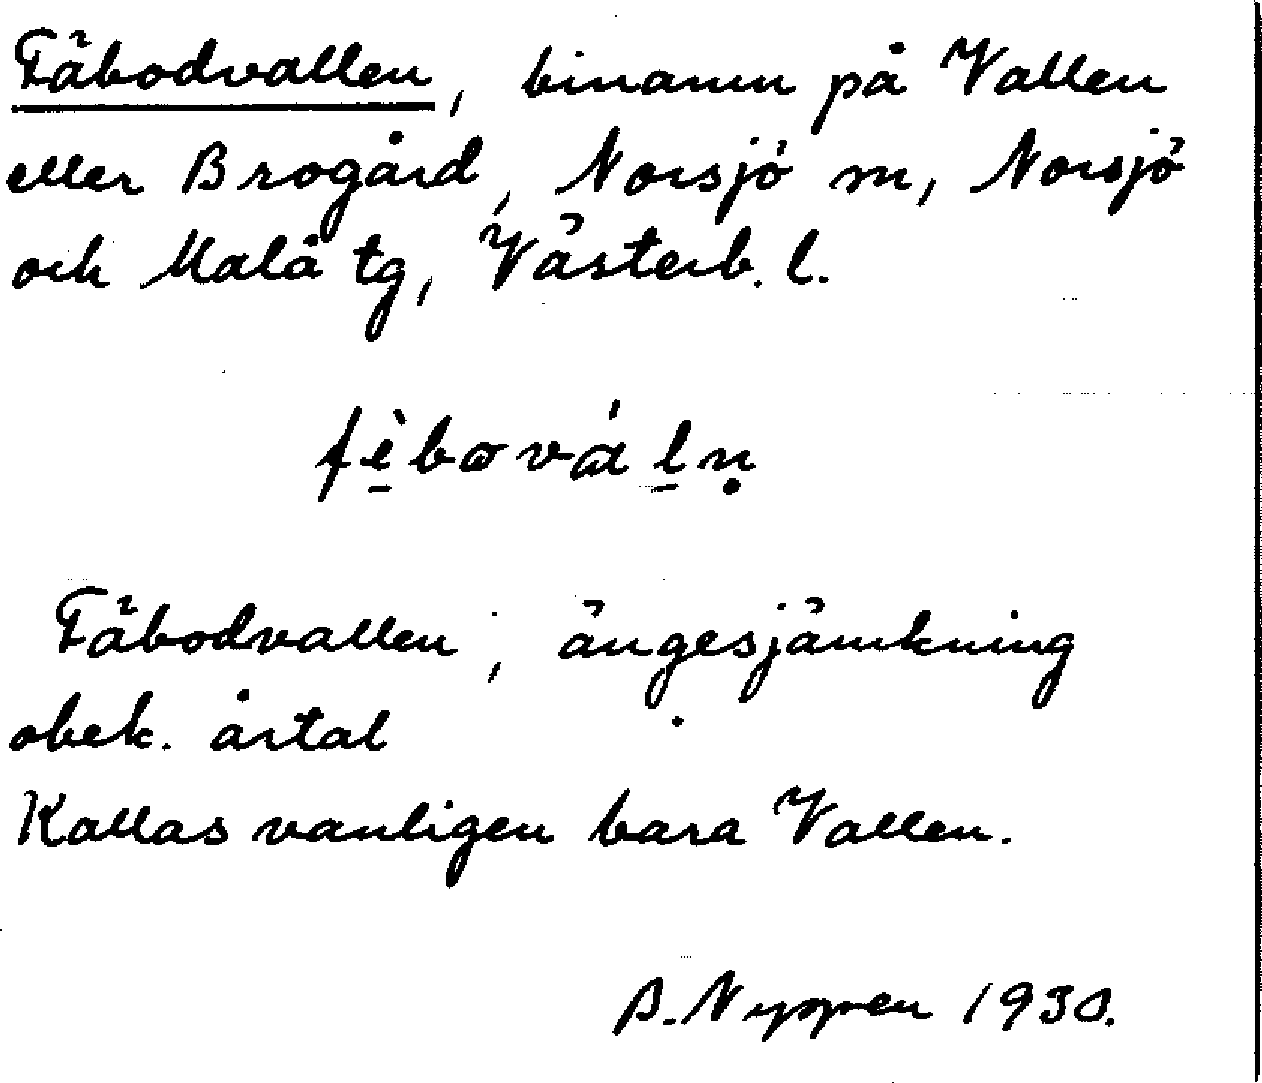 Fäbodvallen, binamn på Vallen
eller Brogård, Norsjö sn, Norsjö
och Malå tg, Västerb. l.
fè̱bωvάḻṇ
Fäbodvallen, ängesjämkning
obek. årtal
Kallas vanligen bara Vallen.
B. Nygren 1930.